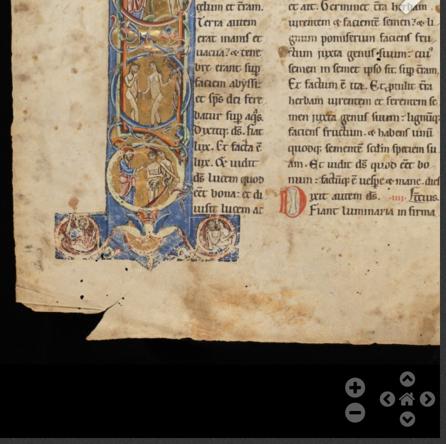 Terra autem
erat inanis et
uacua: ⁊ tene
bre erant sup
faciem abyssi:
et sp̄s dei fere
batur sup aq̄s.
Dixitq; ds̄. fiat
lux. Et facta ē
lux. Et uidit
ds̄ lucem quod
eēt bona: et di
uisit lucem ac
et ait. Germinet t̄ra herbam
uirentem ⁊ facientē semen: ⁊ li
gnum pomiferum faciens fru
ctum juxta genus suum: cui᷒
semen in semet ipso sit sup t̄ram.
Et factum ē ita. Et ptulit t̄ra
herbam uirentem et ferentem se
men juxta genus suum: lignūq;
faciens fructum. ⁊ habens unū
quodq; sementē scdm̄ speciem su
am. Et uidit ds̄ quod eēt bo
num: factūq; ē uespe ⁊ mane. dies
Dixit autem ds̄. ·iii· tercius.
Fiant luminaria in firma